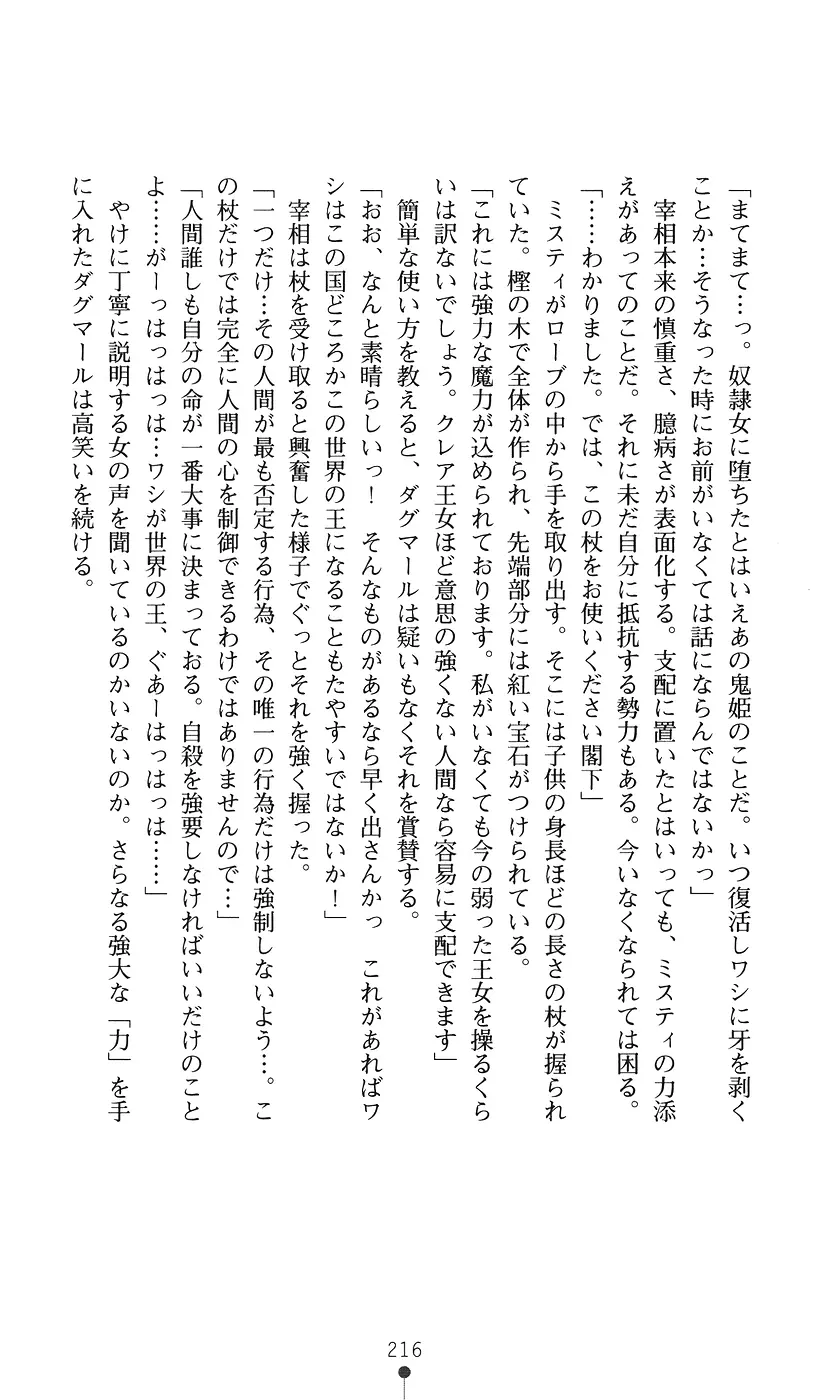 「まてまて…っ。奴隷女に堕ちたとはいえあの鬼姫のことだ。いつ復活しワシに牙を剥く
ことか…そうなった時にお前がいなくては話にならんではないかっ」
　宰相本来の慎重さ、臆病さが表面化する。支配に置いたとはいっても、ミスティの力添
えがあってのことだ。それに未だ自分に抵抗する勢力もある。今いなくなられては困る。
「……わかりました。では、この杖をお使いください閣下」
　ミスティがローブの中から手を取り出す。そこには子供の身長ほどの長さの杖が握られ
ていた。樫の木で全体が作られ、先端部分には紅い宝石がつけられている。
「これには強力な魔力が込められております。私がいなくても今の弱った王女を操るくら
いは訳ないでしょう。クレア王女ほど意思の強くない人間なら容易に支配できます」
　簡単な使い方を教えると、ダグマールは疑いもなくそれを賞賛する。
「おお、なんと素晴らしいっ！　そんなものがあるなら早く出さんかっ　これがあればワ
シはこの国どころかこの世界の王になることもたやすいではないか！」
　宰相は杖を受け取ると興奮した様子でぐっとそれを強く握った。
「一つだけ…その人間が最も否定する行為、その唯一の行為だけは強制しないよう…。こ
の杖だけでは完全に人間の心を制御できるわけではありませんので…」
「人間誰しも自分の命が一番大事に決まっておる。自殺を強要しなければいいだけのこと
よ……がーっはっはっは…ワシが世界の王、ぐあーはっはっは……」
　やけに丁寧に説明する女の声を聞いているのかいないのか。さらなる強大な「力」を手
に入れたダグマールは高笑いを続ける。
216